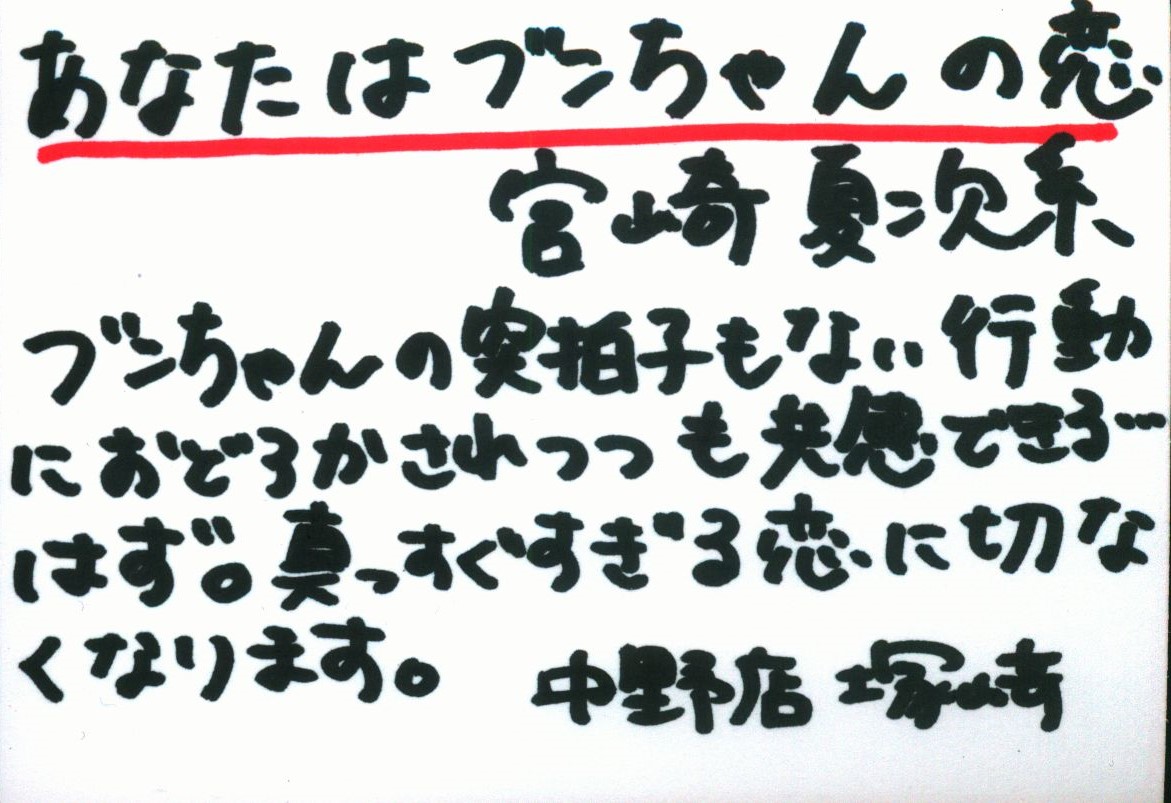 あなたはブンちゃんの恋
宮崎夏次系
ブンちゃんの突拍子もない行動
におどろかされつつも共感できる…
はず。真っすぐすぎる恋に切な
くなります。
中野店 塚崎